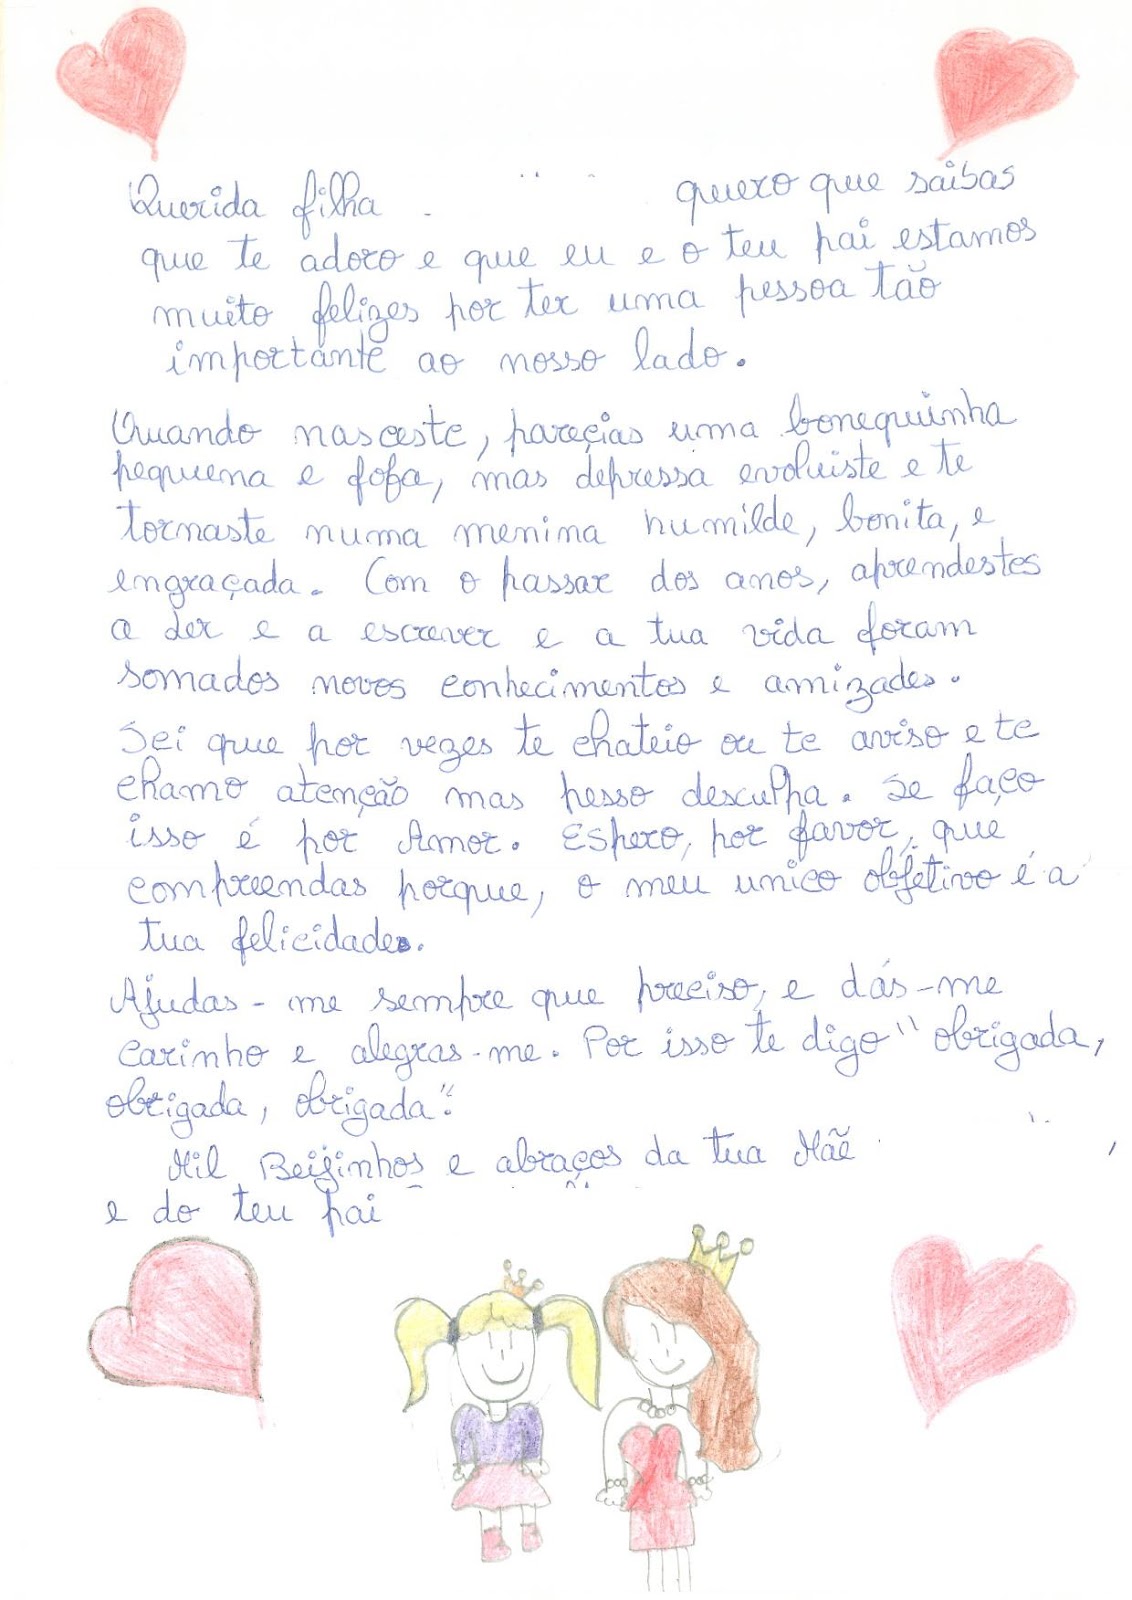 Querida filha quero que saibas
que te adoro e que eu e o teu pai estamos
muito felizes por ter uma pessoa tão
importante ao nosso lado.
Quando nasceste, pareçias uma bonequinha
pequena e fofa, mas depressa evoluiste e te
tornaste numa menina humilde, bonita, e
engraçada. Com o passar dos anos, aprendestes
a ler e a escrever e a tua vida foram
somados novos conhecimentos e amizades.
Sei que por vezes te chateio ou te aviso e te
chamo atenção mas pesso desculpa. Se faço
isso é por Amor. Espero, por favor, que
compreendas porque, o meu unico objetivo é a
tua felicidade.
Ajudas-me sempre que preciso, e dás-me
carinho e alegras-me. Por isso te digo "obrigada,
obrigada, obrigada".
Mil Beijinhos e abraços da tua Mãe
e do teu pai